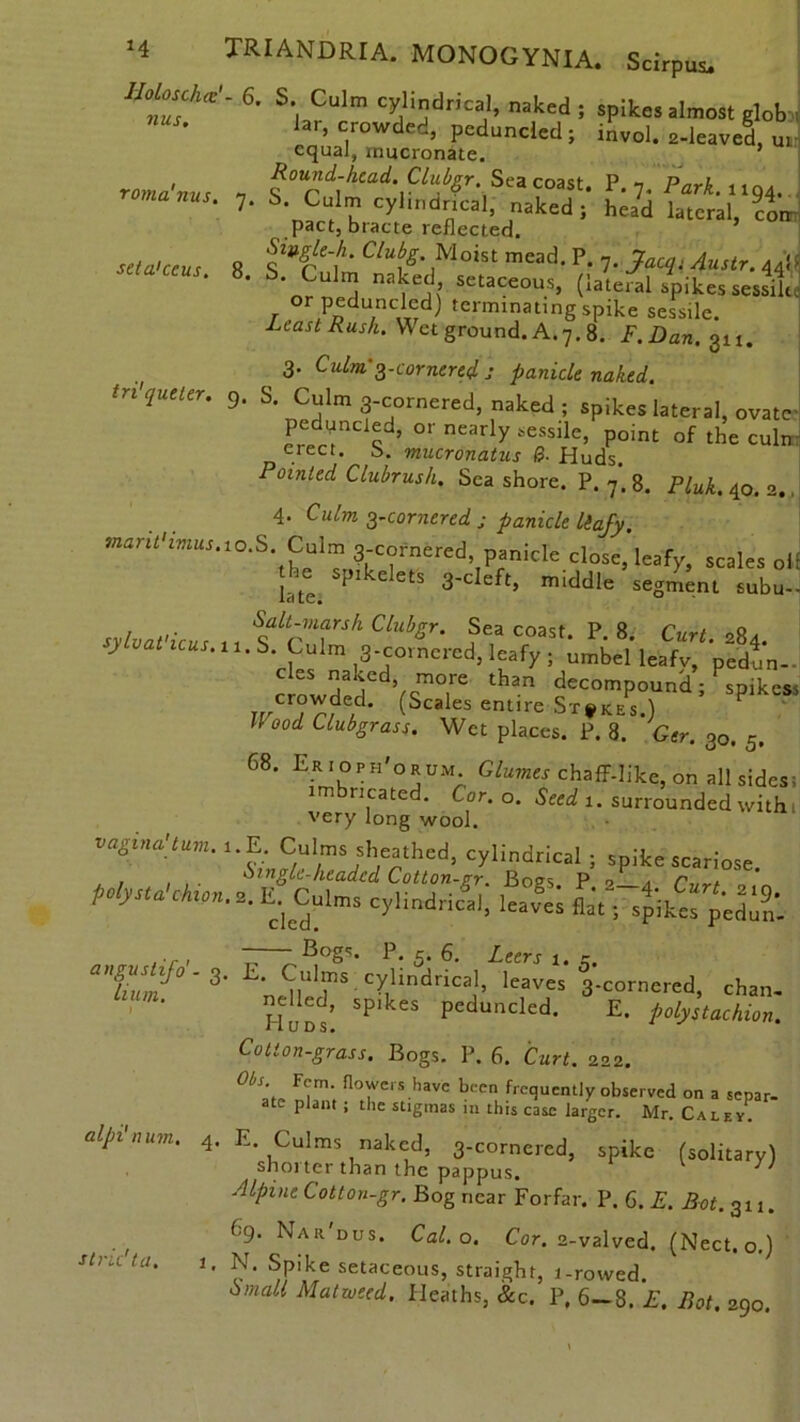 14 TRIANDRIA. MONOGYNIA. Scirpus.
Holoschœ'- 6. S. Culm cylindrical, naked ; spikes almost glob
nus. lar, crowded, peduncled; invol. 2-leaved, un
equal, mucronate.
Round-head. Clubgr. Sea coast. P. 7. Park. 1194.
roma'nus. 7. S. Culm cylindrical, naked ; head lateral, com
pact, bracte reflected.
Single-h. Clubg. Moist mead. P. 7. Jacq. Austr. 448
seta'ceus. 8. S. Culm naked, setaceous, (lateral spikes sessile
or peduncled) terminating spike sessile.
Least Rush. Wet ground. A. 7. 8. F. Dan. 311.
3. Culm 3-cornered ; panicle naked.
tri'queter. 9. S. Culm 3-cornered, naked ; spikes lateral, ovate
peduncled, or nearly sessile, point of the culm
erect. S. mucronatus β. Huds.
Pointed Clubrush. Sea shore. P. 7. 8. Pluk. 40. 2.
4. Culm 3-cornered ; panicle leafy.
marit'imus. 10. S. Culm 3-cornered, panicle close, leafy, scales of
the spikelets 3-cleft, middle segment subu-
late.
Salt-marsh Clubgr. Sea coast. P. 8. Curt. 284.
sylvat'icus. 11. S. Culm 3-cornered, leafy ; umbel leafy, pedun-
cles naked, more than decompound ; spikes
crowded. (Scales entire Stokes.)
Wood Clubgrass. Wet places. P. 8. Ger. 30. 5.
68. Erioph'orum. Glumes chaff-like, on all sides
imbricated. Cor. o. Seed 1. surrounded with
very long wool.
vagina'tum. 1. E. Culms sheathed, cylindrical ; spike scariose.
Single-headed Cotton-gr. Bogs. P. 2—4. Curt. 219.
polysta'chion. 2. E. Culms cylindrical, leaves flat ; spikes pedun-
cled.
—— Bogs. P. 5. 6. Leers 1. 5.
angustifo'- 3. E. Culms cylindrical, leaves 3-cornered, chan-
lium. nelled, spikes peduncled. E. polystachion.
Huds.
Cotton-grass. Bogs. P. 6. Curt. 222.
Obs. Fem. flowers have been frequently observed on a separ-
ate plant ; the stigmas in this case larger. Mr. Caley.
alpi'num. 4. E. Culms naked, 3-cornered, spike (solitary)
shorter than the pappus.
Alpine Cotton-gr. Bog near Forfar. P. 6. E. Bot. 311.
69. Nar'dus. Cal. o. Cor. 2-valved. (Nect. o.)
stric'ta. 1. N. Spike setaceous, straight, 1-rowed.
Small Matweed. Heaths, &c. P. 6—8. E. Bot. 290.